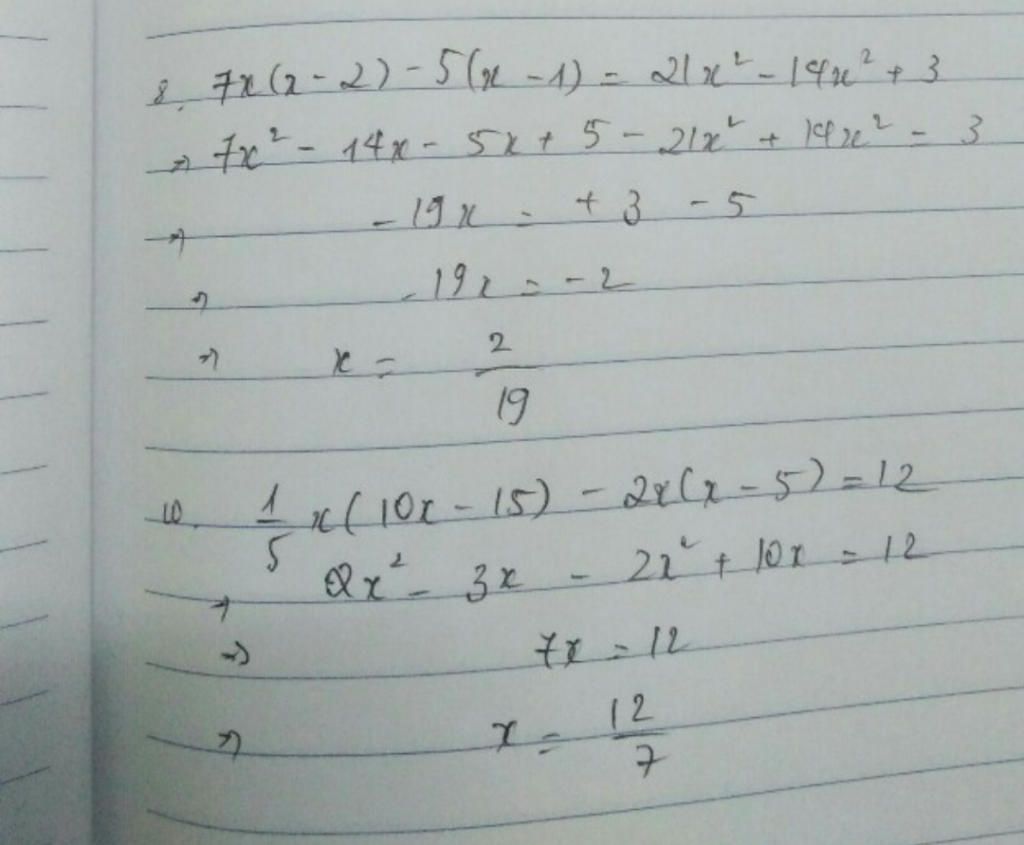 8. 7x(x - 2) - 5(x - 1) = 21x² - 14x² + 3
⇒ 7x² - 14x - 5x + 5 - 21x² + 14x² = 3
⇒ - 19x = + 3 - 5
⇒ - 19x = - 2
⇒ x = 2/19
10. 1/5 x(10x - 15) - 2x(x - 5) = 12
⇒ 2x² - 3x - 2x² + 10x = 12
⇒ 7x = 12
⇒ x = 12/7